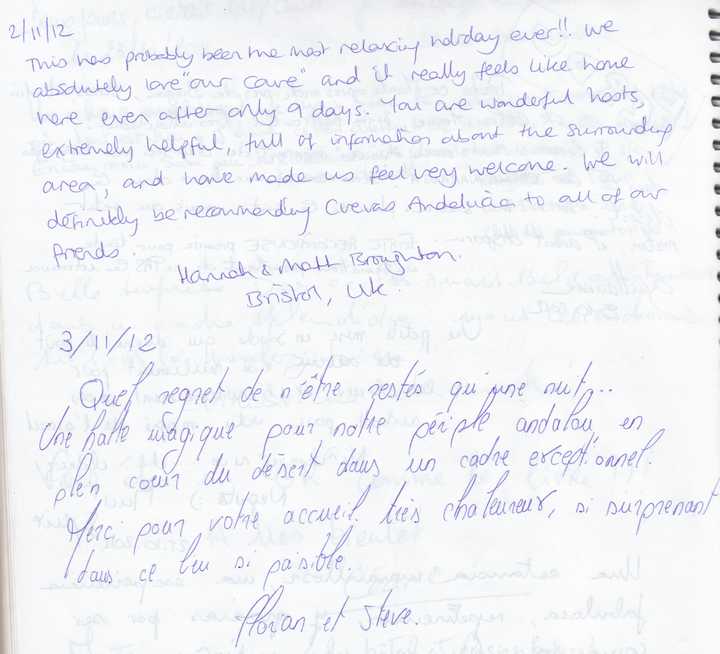 2/11/12
This has probably been the most relaxing holiday ever!! We
absolutely love "our cave" and it really feels like home
here even after only 9 days. You are wonderful hosts,
extremely helpful, full of information about the surrounding
area, and have made us feel very welcome. We will
definitely be recommending Cuevas Andalucia to all of our
friends.
Hannah & Matt Broughton.
Bristol, UK.
3/11/12
Quel regret de n'être restés qu'une nuit...
Une halte magique pour notre périple andalou, en
plein coeur du désert dans un cadre exceptionnel.
Merci pour votre accueil très chaleureux, si surprenant
dans ce lieu si paisible.
Florian et Steve.